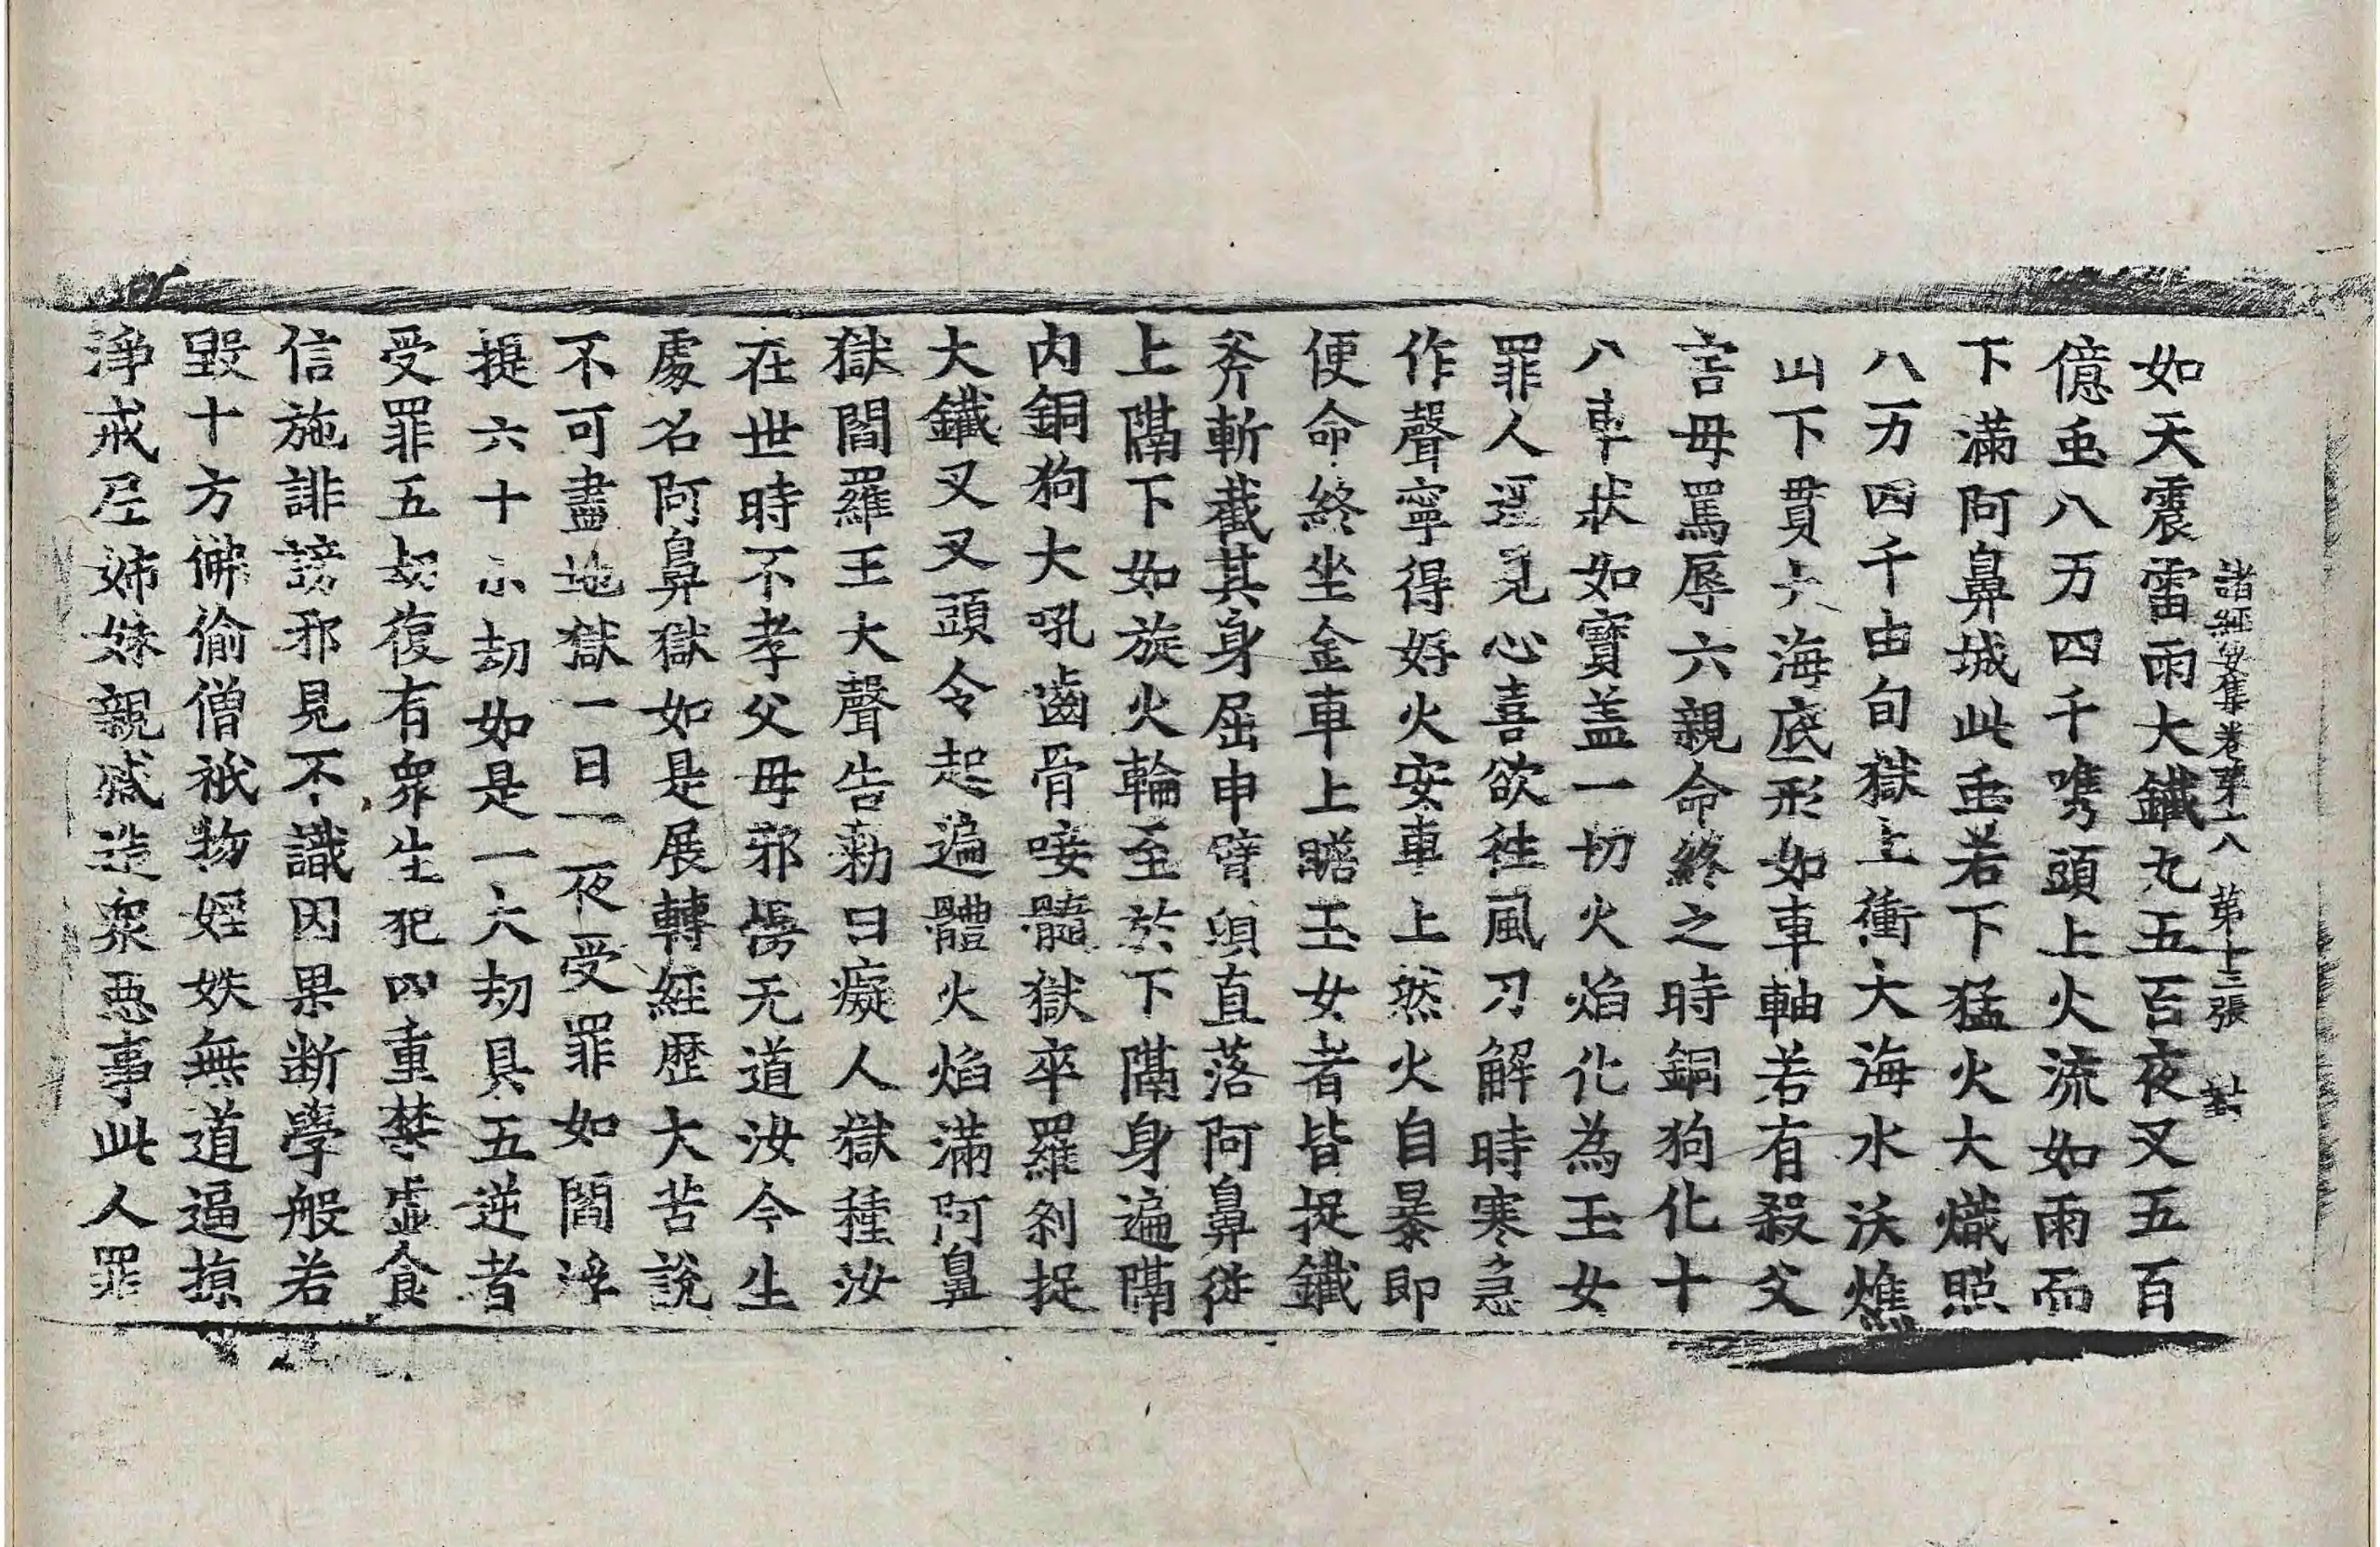 諸經要集卷第十八 第十三張
如天震雷雨大鐵丸五百夜叉五百
億䖝八万四千㭰頭上火流如雨而
下滿阿鼻城此䖝若下猛火大熾照
八万四千由旬獄上衝大海水沃燋
山下貫大海底形如車軸若有殺父
害母罵辱六親命終之時銅狗化十
八車狀如寶盖一切火焰化為玉女
罪人遥見心喜欲往風刀解時寒急
作聲寧得好火安車上然火自暴即
便命終坐金車上瞻玉女者皆捉鐵
斧斬截其身屈申臂頃直落阿鼻從
上隔下如旋火輪至於下隔身遍隔
内銅狗大吼齒骨唼髓獄卒羅剎捉
大鐵叉叉頭令起遍體火焰滿阿鼻
獄閻羅王大聲告勑曰癡人獄種汝
在世時不孝父母邪慢无道汝今生
處名阿鼻獄如是展轉經歷大苦說
不可盡地獄一日一夜受罪如閻浮
提六十小劫如是一大劫具五逆者
受罪五劫復有眾生犯四重禁虛食
信施誹謗邪見不識因果断學般若
毀十方佛偷僧祇物婬妷無道逼掠
淨戒尼姊妹親戚造眾惡事此人罪